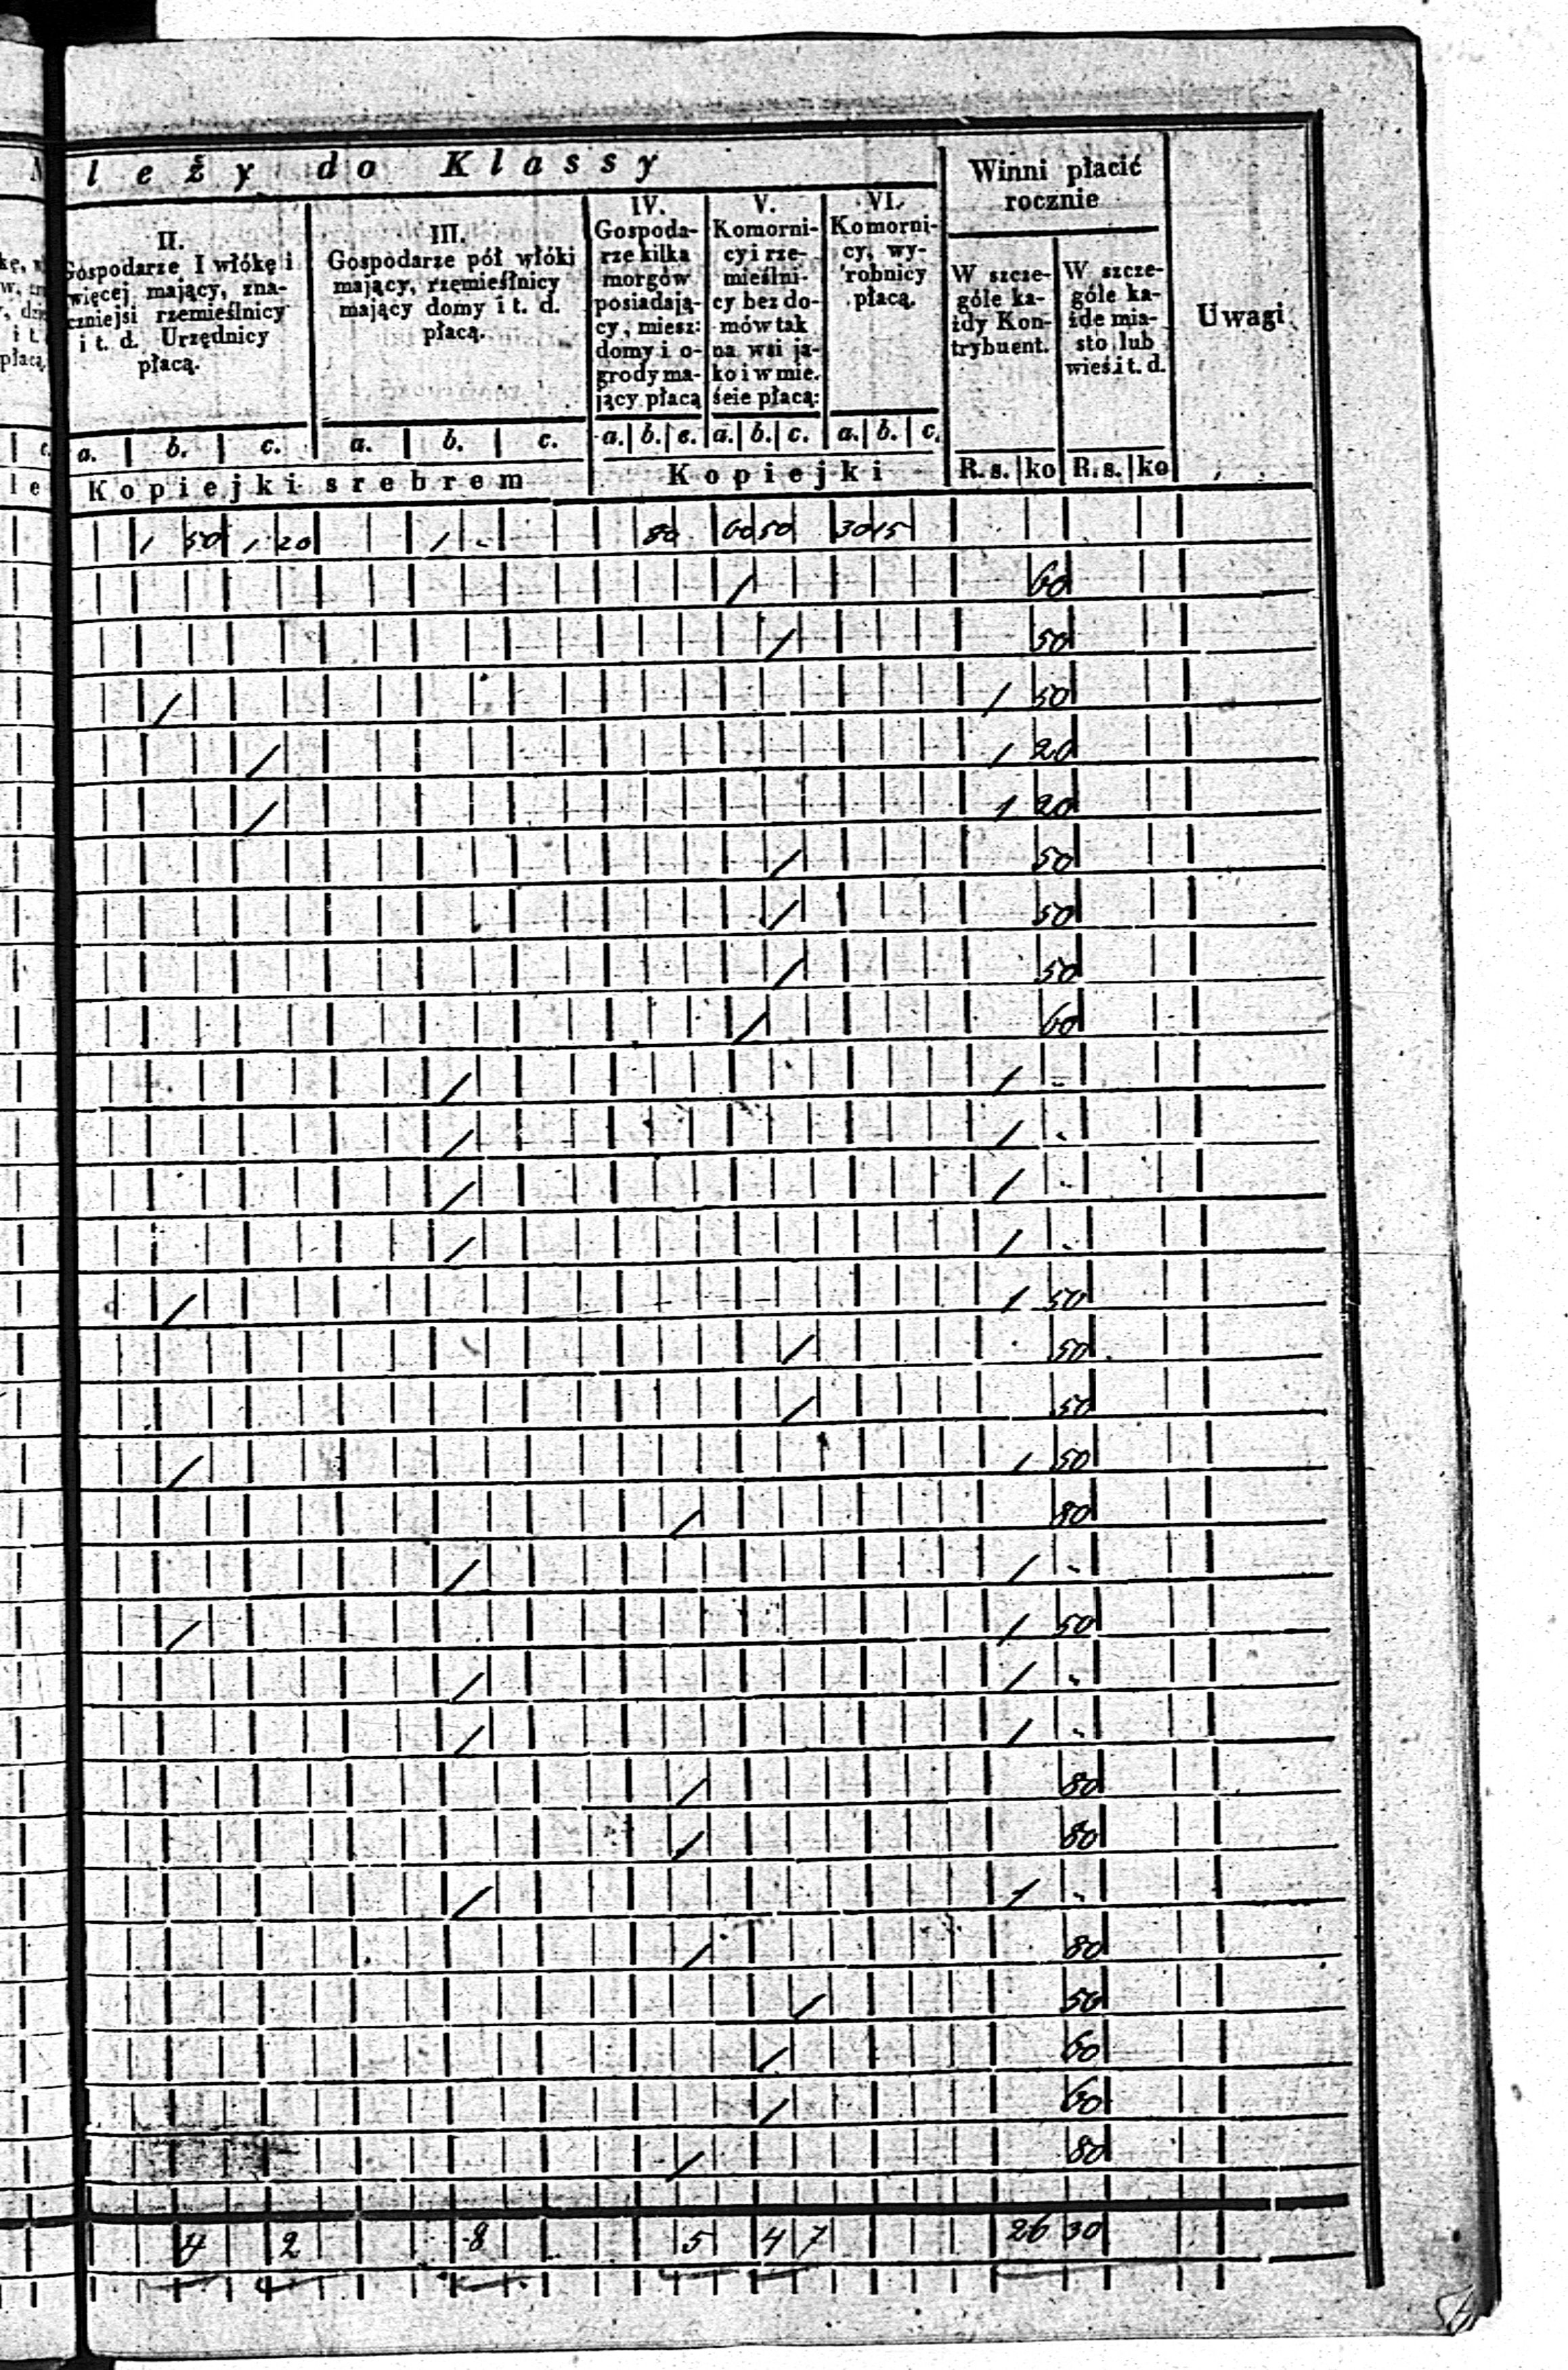 leży do Klassy
Winni płacić
rocznie
Uwagi
II.
Gospodarze I włókę i
więcej mający, zna-
czniejsi rzemieślnicy
i t. d. Urzędnicy
płacą.
III.
Gospodarze pół włóki
mający, rzemieślnicy
mający domy i t. d.
płacą.
IV.
Gospoda-
rze kilka
morgów
posiadają-
cy, miesz:
domy i o-
grody ma-
jący płacą
V.
Komorni-
cy i rze-
mieślni-
cy bez do-
mów tak
na wsi ja-
ko i w mie-
ście płacą:
VI.
Komorni-
cy, wy-
robnicy
płacą.
W szcze-
góle ka-
żdy Kon-
trybuent.
W szcze-
góle ka-
żde mia-
sto lub
wieś i t. d.
a. b. c. a. b. c. a. b. c. a. b. c. a. b. c.
Kopiejki srebrem Kopiejki R. s. ko R. s. ko
1 50 1 20 1 - 80 60 50 30 15
/ 60
/ 50
/ 1 50
/ 1 20
/ 1 20
/ 50
/ 50
/ 50
/ 60
/ 1 -
/ 1 -
/ 1 -
/ 1 -
/ 1 50
/ 50
/ 50
/ 1 50
/ 80
/ 1 -
/ 1 50
/ 1 -
/ 1 -
/ 80
/ 80
/ 1 -
/ 80
/ 50
/ 60
/ 60
/ 80
4 2 8 5 4 7 26 30